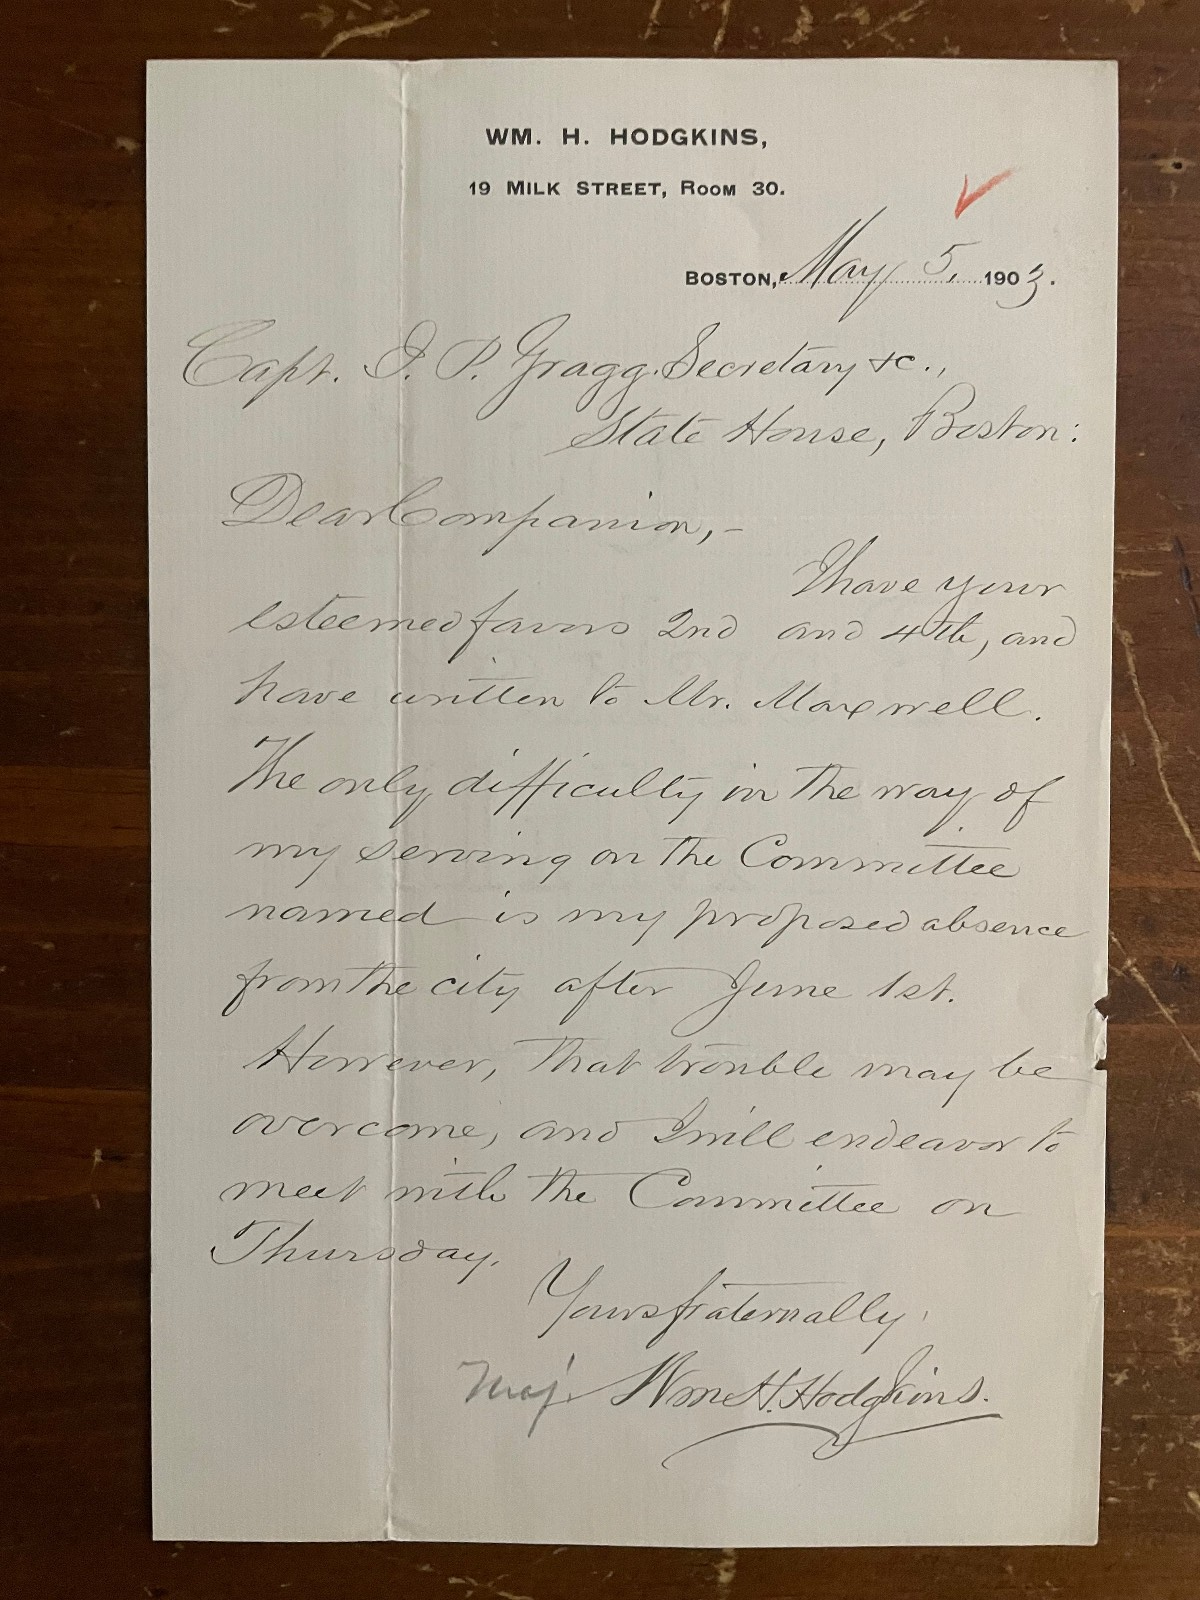 WM. H. HODGKINS,
19 MILK STREET, ROOM 30.
BOSTON, May 5, 1903.
Capt. I. P. Gragg, Secretary &c.,
State House, Boston:
Dear Companion,-
I have your
esteemed favors 2nd and 4th, and
have written to Mr. Maxwell.
The only difficulty in the way of
my serving on the Committee
named is my proposed absence
from the city after June 1st.
However, that trouble may be
overcome, and I will endeavor to
meet with the Committee on
Thursday.
Yours fraternally,
Maj. Wm H. Hodgkins.